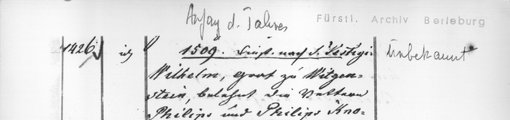 Anfang d. Jahres
Fürstl. Archiv Berleburg
1426 1509. Dienst. nach d. hl. unbekannt
Wilhelm, Graf zu Witgen-
stein, belehnt die Vettern
Philips und Philips Kno-